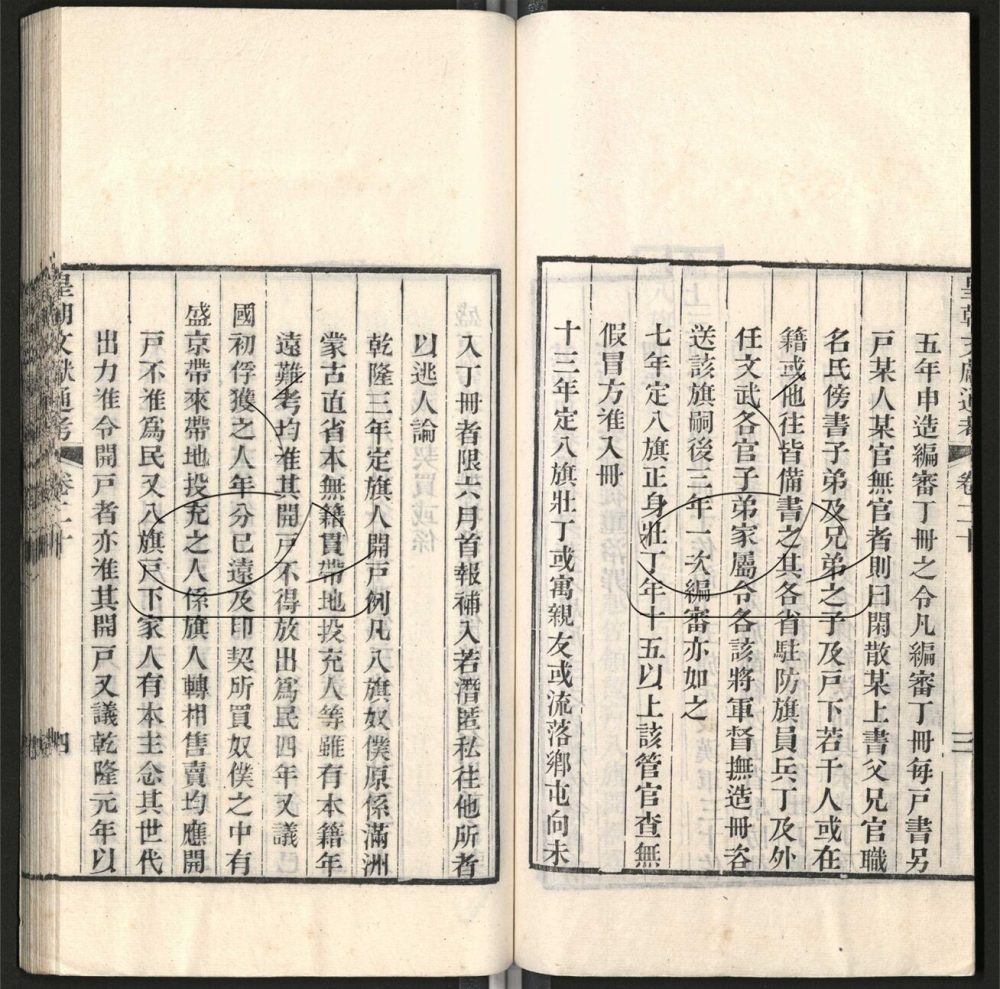 五年申造編審丁冊之令凡編審丁冊每戸書另
戸某人某官無官者則曰閑散某上書父兄官職
名氏傍書子弟及兄弟之子及戸下若干人或在
籍或他往皆備書之其各省駐防旗員兵丁及外
任文武各官子弟家屬令各該將軍督撫造冊咨
送該旗嗣後三年一次編審亦如之
七年定八旗正身壯丁年十五以上該管官查無
假冒方准入冊
十三年定八旗壯丁或寓親友或流落鄉屯向未
皇朝文獻通考 卷二十 三
入丁冊者限六月首報補入若潛匿私往他所者
以逃人論
乾隆三年定旗人開戸例凡八旗奴僕原係滿洲
蒙古直省本無籍貫帶地投充人等雖有本籍年
遠難考均准其開戸不得放出爲民四年又議
國初俘獲之人年分已遠及印契所買奴僕之中有
盛京帶來帶地投充之人係旗人轉相售賣均應開
戸不准爲民又八旗戸下家人有本主念其世代
出力准令開戸者亦准其開戸又議乾隆元年以
皇朝文獻通考 卷二十 四